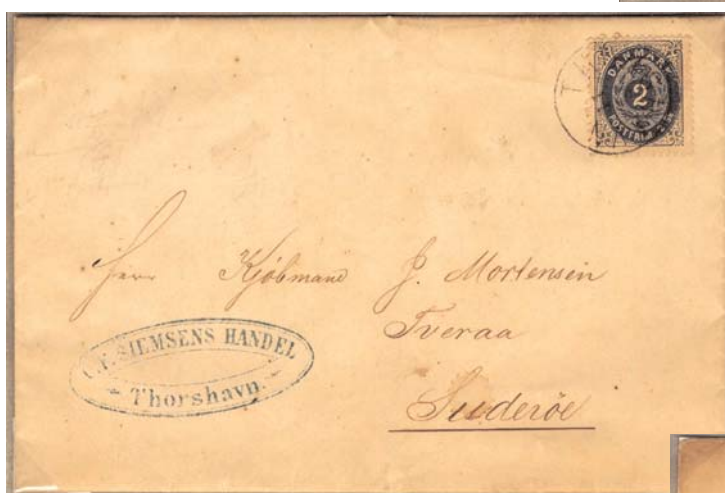 DANMARK
2
Herr Kjöbmand J. Mortensen
Tveraa
Suderöe
SIEMSENS HANDEL
Thorshavn.